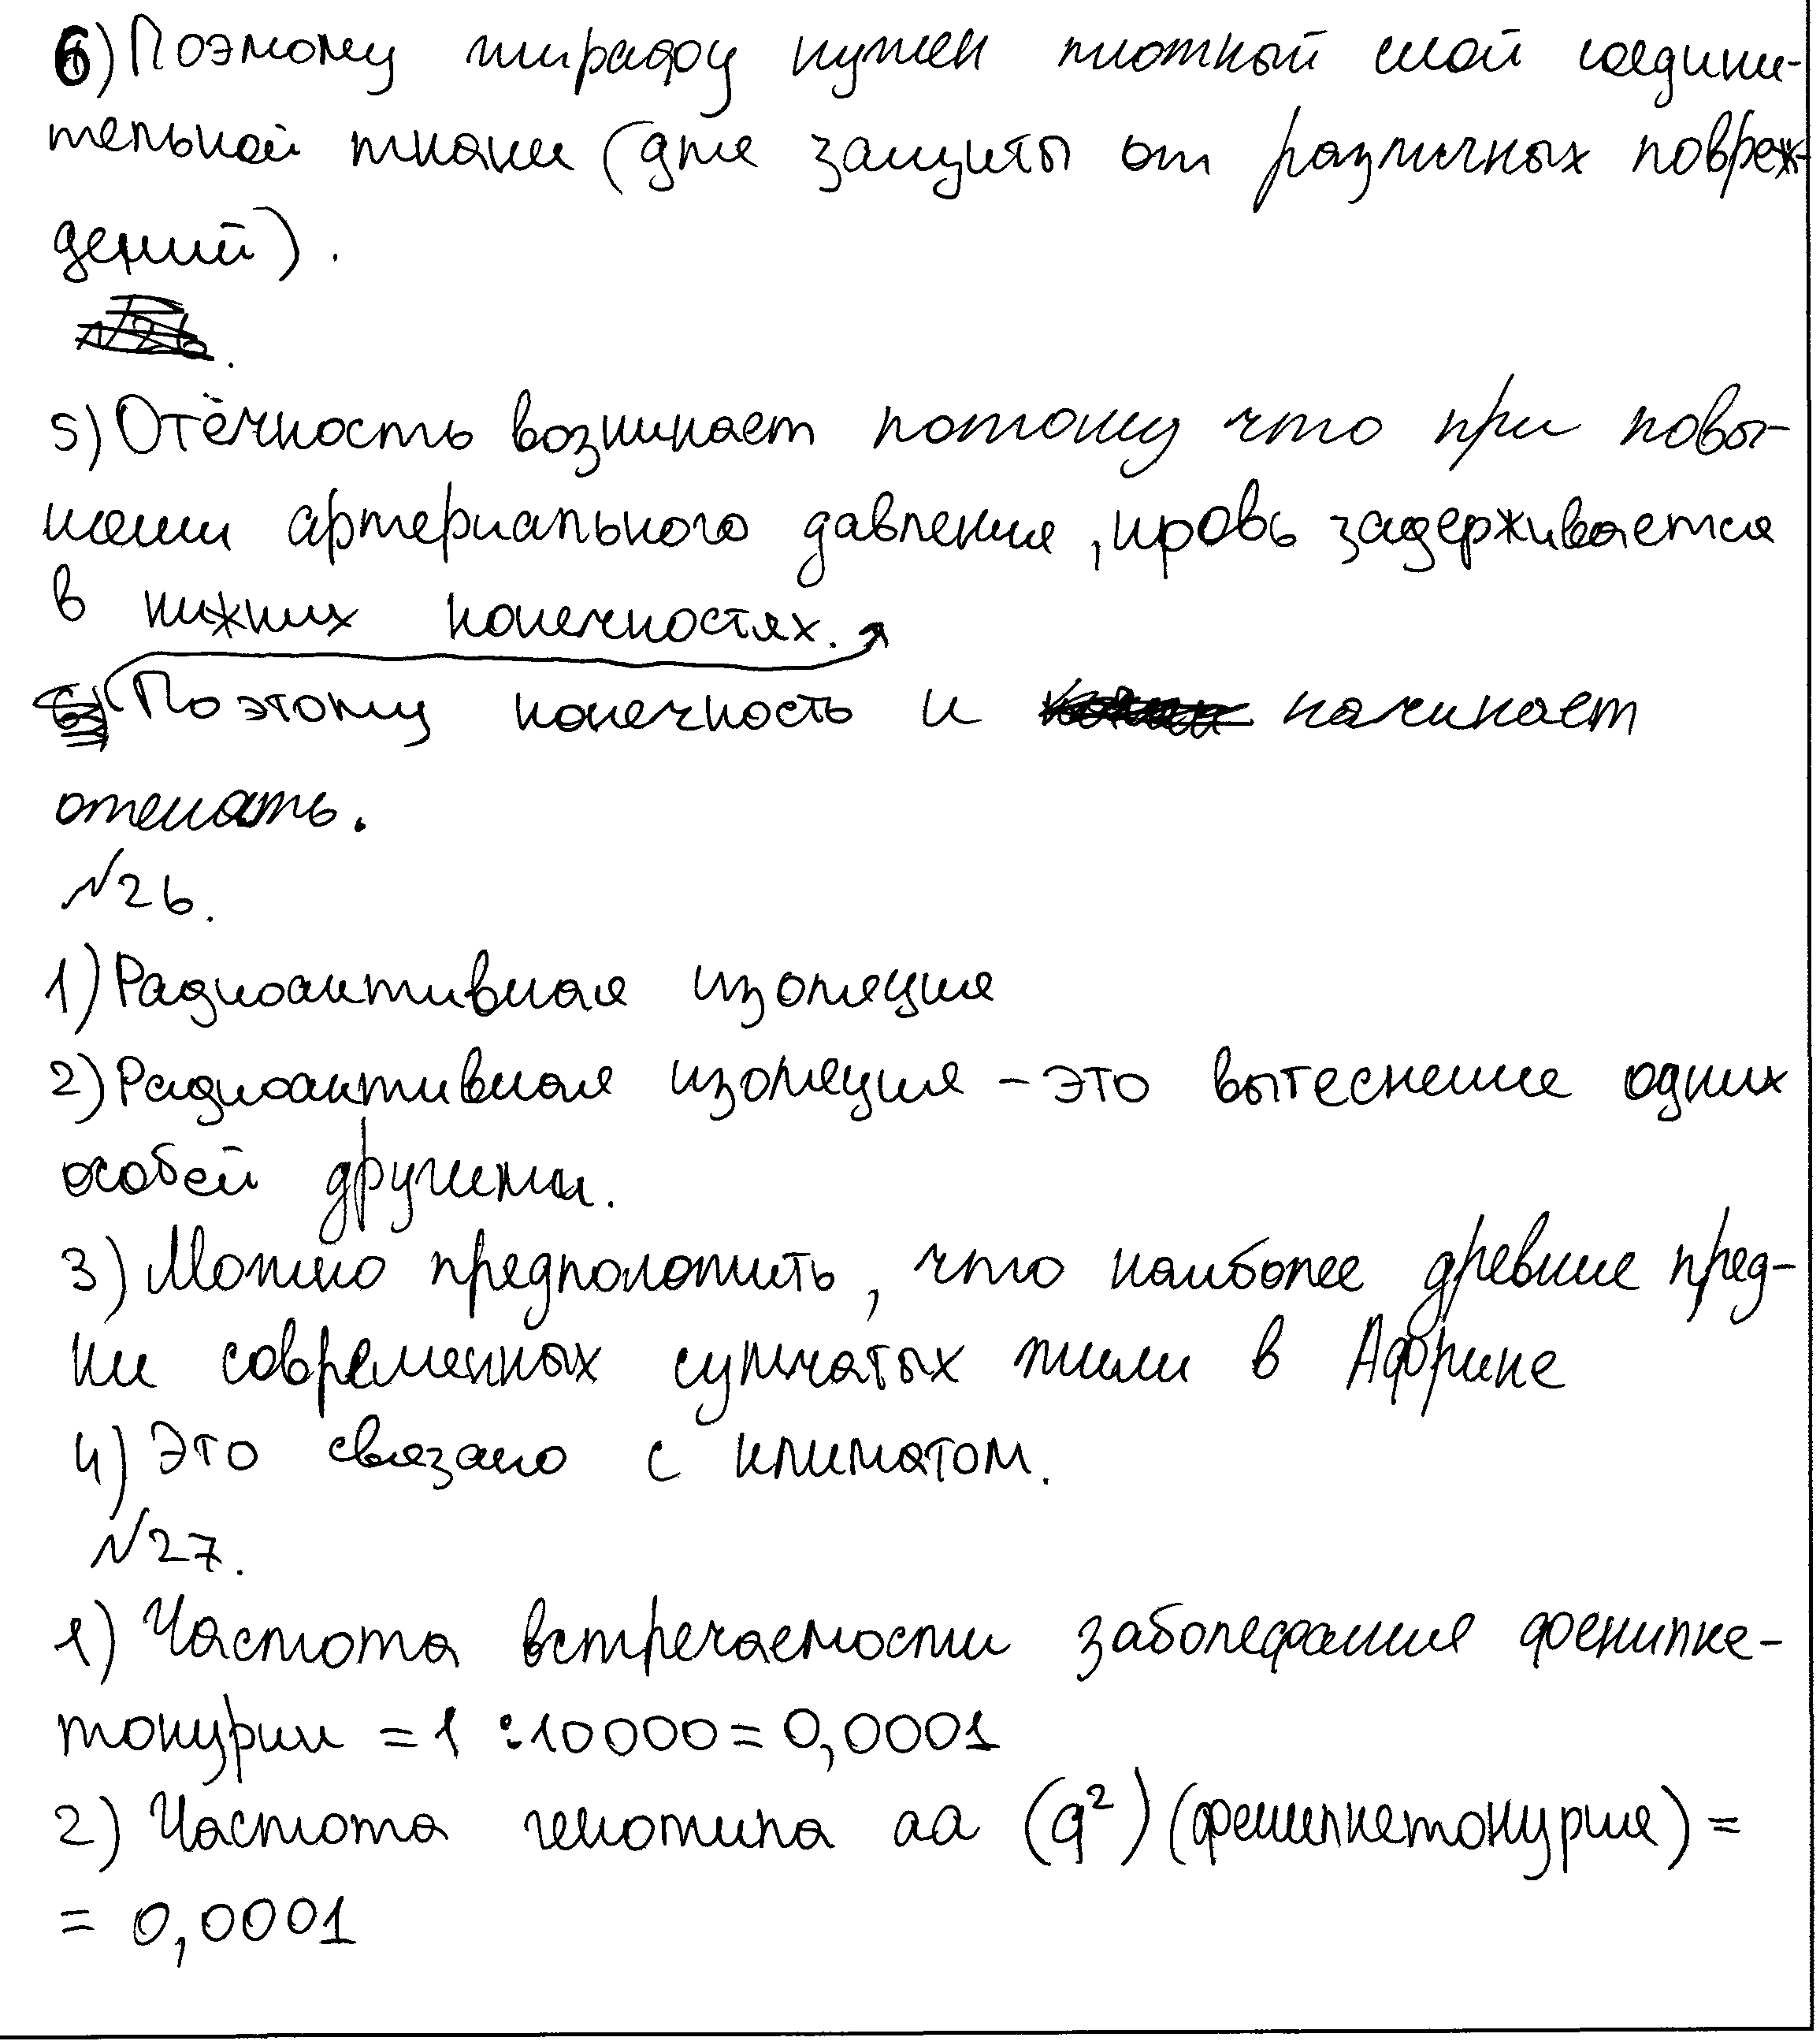 6) Поэтому жирафу нужен плотный слой соедини-
тельной ткани (для защиты от различных повреж-
дений).
№26.
5) Отёчность возникает потому что при повы-
шении артериального давления, кровь задерживается
в нижних конечностях.
Поэтому конечность и начинает
отекать.
№26.
1) Радиоактивная изоляция
2) Радиоактивная изоляция - это вытеснение одних
особей другими.
3) Можно предположить, что наиболее древние пред-
ки современных сумчатых жили в Африке
4) Это связано с климатом.
№27.
1) Частота встречаемости заболевания фенилке-
тонурии = 1 : 10000 = 0,0001
2) Частота генотипа аа (q²) (фенилкетонурия) =
= 0,0001